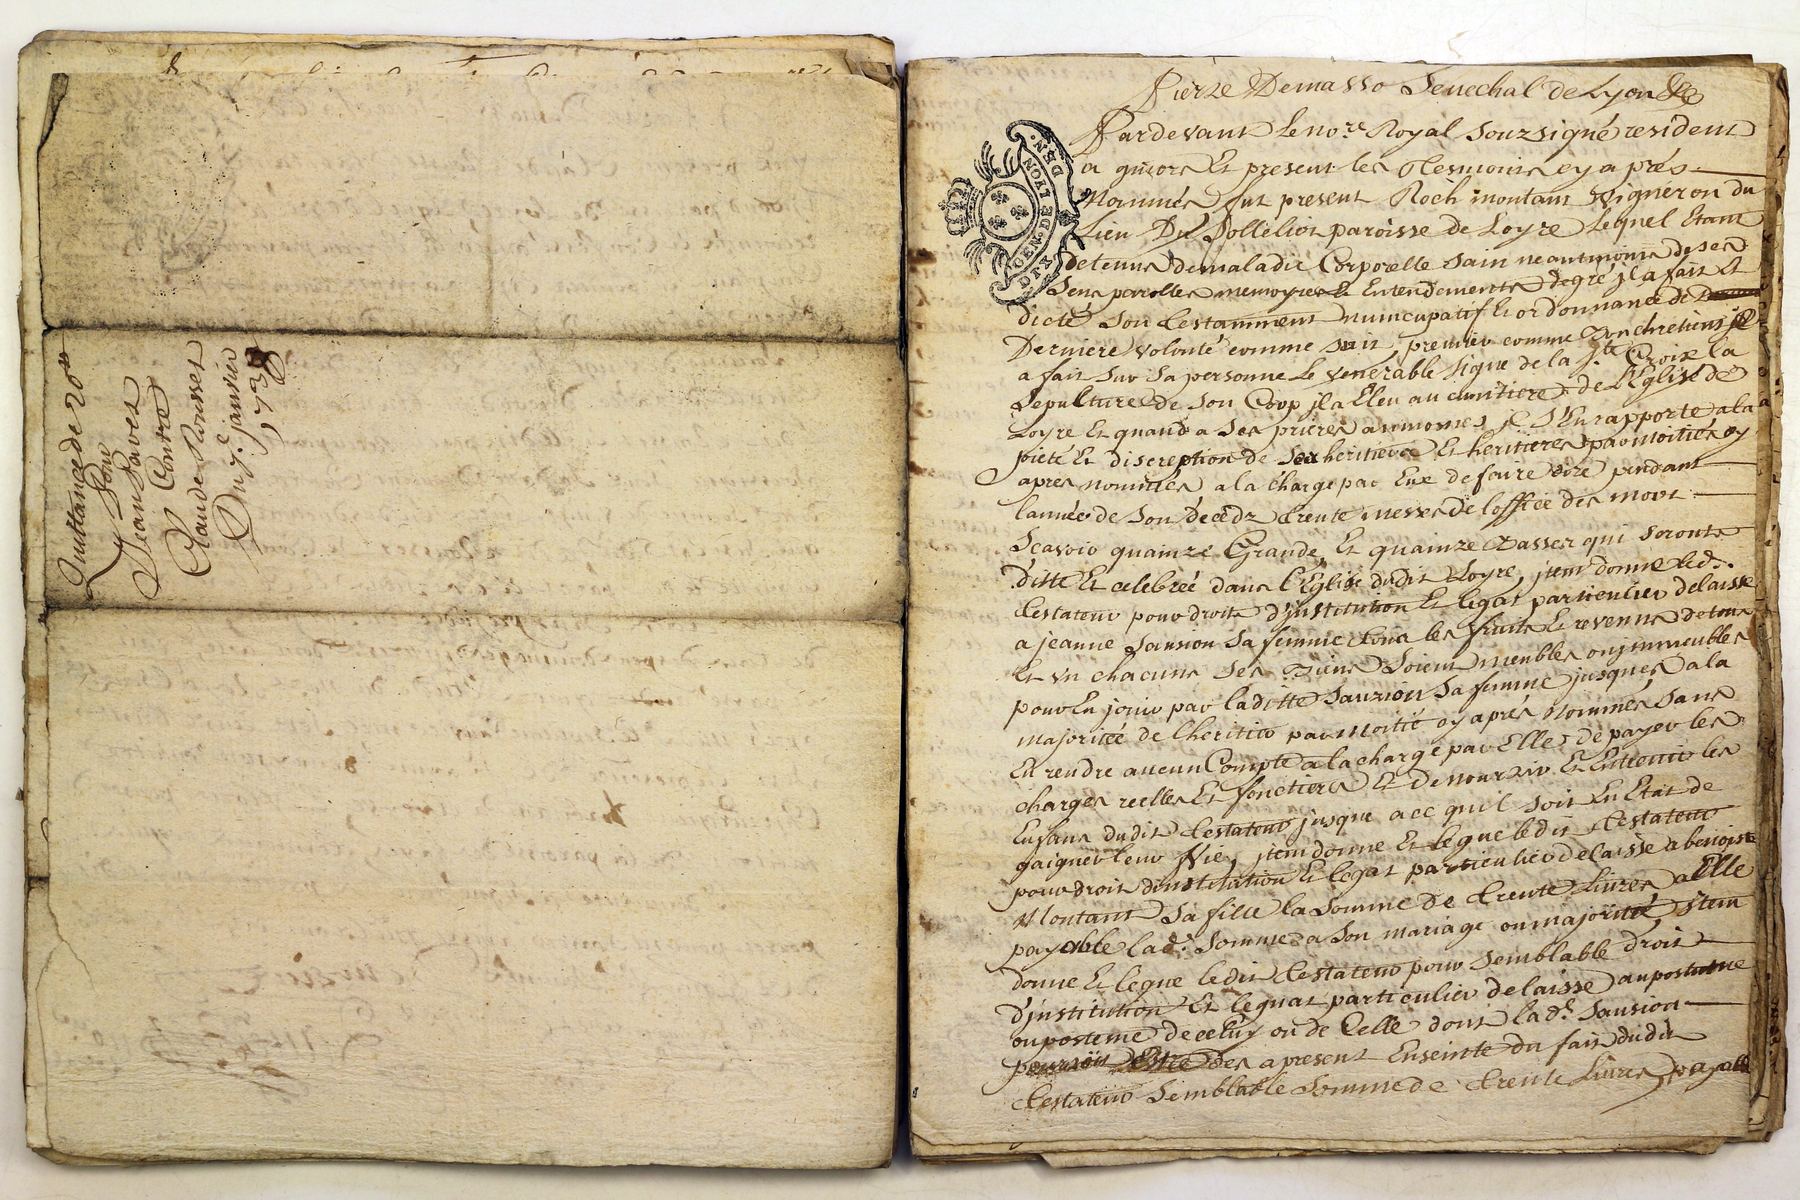 Quittance de 20ˡᵗ
Pour
Jean Paves
Contre
Claude Rousset
Du 7ᵉ janvier
1738
Pierre Demasso Senechal de Lyon &c
Pardevant Le noʳᵉ Royal souzsigné resident
a givors Et present les tesmoins cy aprés
Nommés fut present Roch montant Vigneron du
Lieu Du paroisse de Loyre Lequel Etant
detenu de maladie Corporelle sain neantmoins de ses
sens parolles memoyre Et Entendements de gré jl a fait Et
dicté son testamment nuncupatif Et ordonnance de
Derniere volonté comme suit, premier comme bon chretiens jl
a fait sur sa personne Le venerable signe de la Sᵗᵉ Croix la
sepulture de son Corp jl a Eleu au cimitiere de L'Eglise de
Loyre Et quand a ses prieres aumones jl s'En rapporte a la
pieté Et discreption de ses heritiere Et heritieres par moitiés cy
apres nommés a la charge par Eux de faire dire pendant
l'année de son décedz trente messes de l'office des mort
scavoir quainze Grande Et quainze Basses qui seront
ditte Et celebrée dans L'Eglise dudit Loyre, jtem donne led.
testateur pour droits d'jnstitution Et legat particulier delaisse
a jeanne sansion sa femme tous les fruits Et revenus de tous
Et un chacuns ses Biens soient meubles ou jmmeubles
pour En jouir par laditte sauzion sa femme jusques a la
majoritée de l'heritier par moitié cy aprés nommés sans
En rendre aucun Compte a la charge par Elle de payer les
charges reelles Et fonctieres Et De nourrir Et Entenir les
Enfans dudit testateur jusque a ce quil soit En Etat de
gaigner leur Vie, jtem donne Et legue ledit testateur
pour droit dinstitution Et legat particulier delaisse a benoiste
Montant sa fille la somme de trente Livres a Elle
payable lad. somme a son mariage ou majorité, jtem
donne Et legue ledit testateur pour semblable droit
d'jnstitution Et leguat particulier delaisse au postume
ou posteme de celuy ou de Celle dont lad. sausion
pourroit Estre des a present Enseinte du fait dudit
testateur semblable somme de trente Livres payable
GEN. DE LYON
DEN.